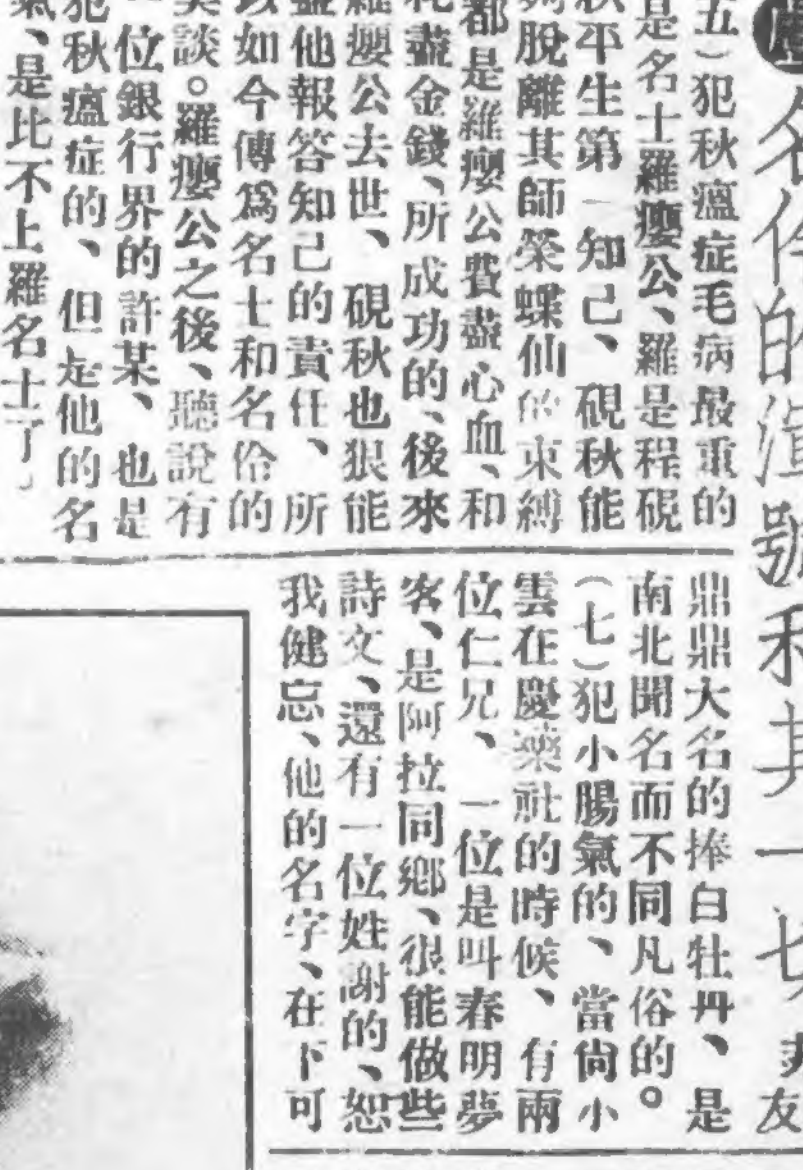 名伶的渾號和其一切
友
五）犯秋瘟症毛病最重的
是名士羅癭公、羅是程硯
秋平生第一知己、硯秋能
夠脫離其師榮蝶仙的束縛
都是羅癭公費盡心血、和
花盡金錢、所成功的、後來
羅癭公去世、硯秋也狠能
盡他報答知己的責任、所
以如今傳爲名士和名伶的
美談。羅癭公之後、聽說有
位銀行界的許某、也是
犯秋瘟症的、但是他的名
氣、是比不上羅名士了」
鼎鼎大名的捧白牡丹、是
南北聞名而不同凡俗的。
（七）犯小腸氣的、當尙小
雲在慶樂社的時候、有兩
位仁兄、一位是叫春明夢
客、是阿拉同鄉、很能做些
詩文、還有一位姓謝的、恕
我健忘、他的名字、在下可